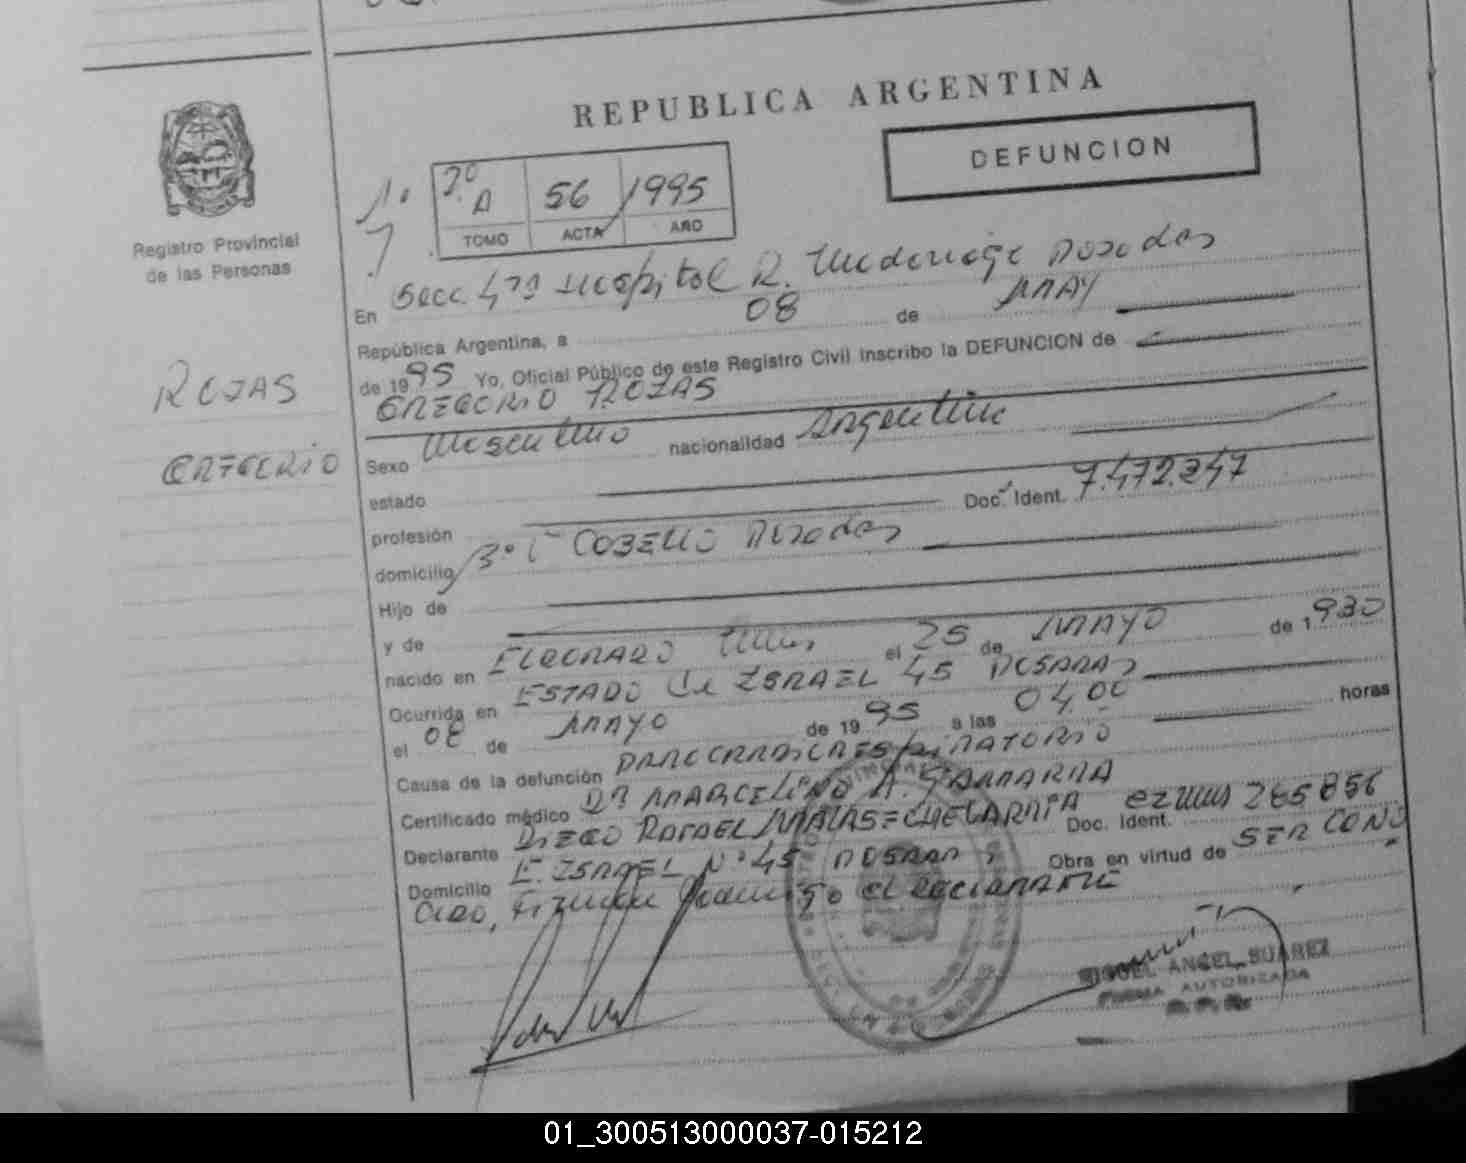 REPUBLICA ARGENTINA
DEFUNCION
2º A 56 1995
TOMO ACTA AÑO
Registro Provincial
de las Personas
ROJAS
GREGORIO
En Secc. 4ta Hospital R. Madariaga Posadas
República Argentina, a 08 de MAY
de 1995 Yo, Oficial Público de este Registro Civil Inscribo la DEFUNCION de
GREGORIO ROJAS
Sexo Masculino nacionalidad Argentina
estado
profesión Doc. Ident. 7.472.247
domicilio Posadas
Hijo de
y de
nacido en ELDORADO el 25 de MAYO de 1930
Ocurrida en ESTADO de ISRAEL 45 POSADAS
el 08 de MAYO de 1995 a las 04,00 horas
Causa de la defunción PAROCARDIORESPIRATORIO
Certificado médico DR MARCELINO A. GAMARRA
Declarante DIEGO RAFAEL Doc. Ident. 265856
Domicilio E. ISRAEL Nº 45 POSADAS Obra en virtud de SER CONO
CIDO, el DECLARANTE
MIGUEL ANGEL SUAREZ
FIRMA AUTORIZADA
01_300513000037-015212